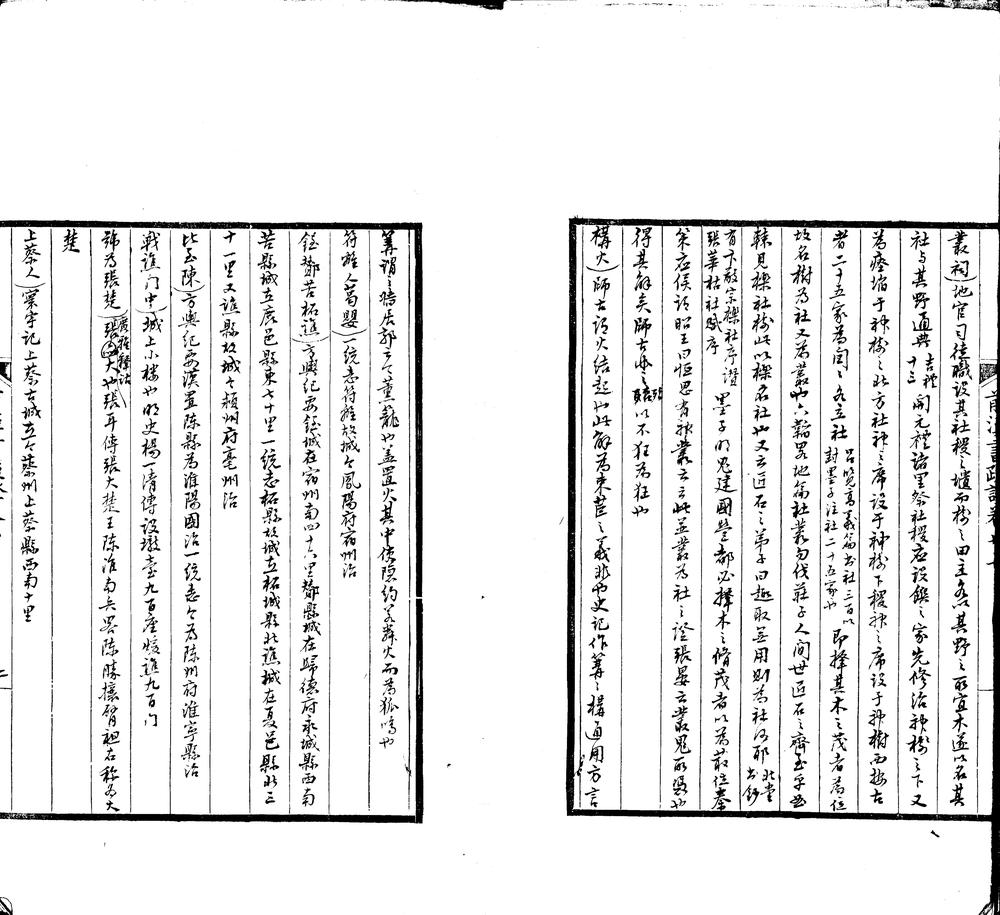 叢祠)地官司徒職設其社稷之壝而樹之田主各以其野之所宜木遂以名其
社与其野通典吉禮十三開元禮諸里祭社稷应設饌之家先修治神樹之下又
為瘞埳于神樹之北方社神之席設于神樹下稷神之席設于神樹西按古
者二十五家為閭閭各立社呂覽高義篇书社三百以封墨子注社二十五家也即擇其木之茂者為位
故名樹為社又為叢也六韜畧地篇社叢勿伐莊子人間世匠石之齊至乎曲
轅見櫟社樹此以櫟名社也又云匠石之弟子曰趣取無用則為社何耶北堂书鈔
有卞敬宗櫟社序讚張華枯社賦序墨子明鬼建國營都必擇木之脩茂者以為菆位秦
策应侯謂昭王曰恒思有神叢云云此並叢為社之證張晏云叢鬼所憑也
得其解矣師古以不狂為狂也
構火)師古謂火结起也此解為束苣之義非也史記作篝篝構通用方言
篝謂之牆居郭云今薰籠也蓋置火其中使隱约若燐火而為狐鳴也
符離人葛嬰)一统志符離故城今鳳陽府宿州治
銍酇苦柘譙)方輿纪要銍城在宿州南四十六里酇縣城在歸德府永城縣西南
苦縣城在鹿邑縣東七十里一统志柘縣故城在柘城縣北譙城在夏邑縣北三
十一里又譙縣故城今穎州府亳州治
比至陳)方輿纪要漢置陈縣為淮陽國治一统志今為陈州府淮寧縣治
戰譙门中)城上小楼也明史楊一清傳設墩臺九百座煖譙九百门
號為張楚)廣雅釋詁張大也張耳傳張大楚王陈淮南兵畧陈勝攘臂袒右称為大
楚
上蔡人)寰宇记上蔡古城在今蔡州上蔡縣西南十里